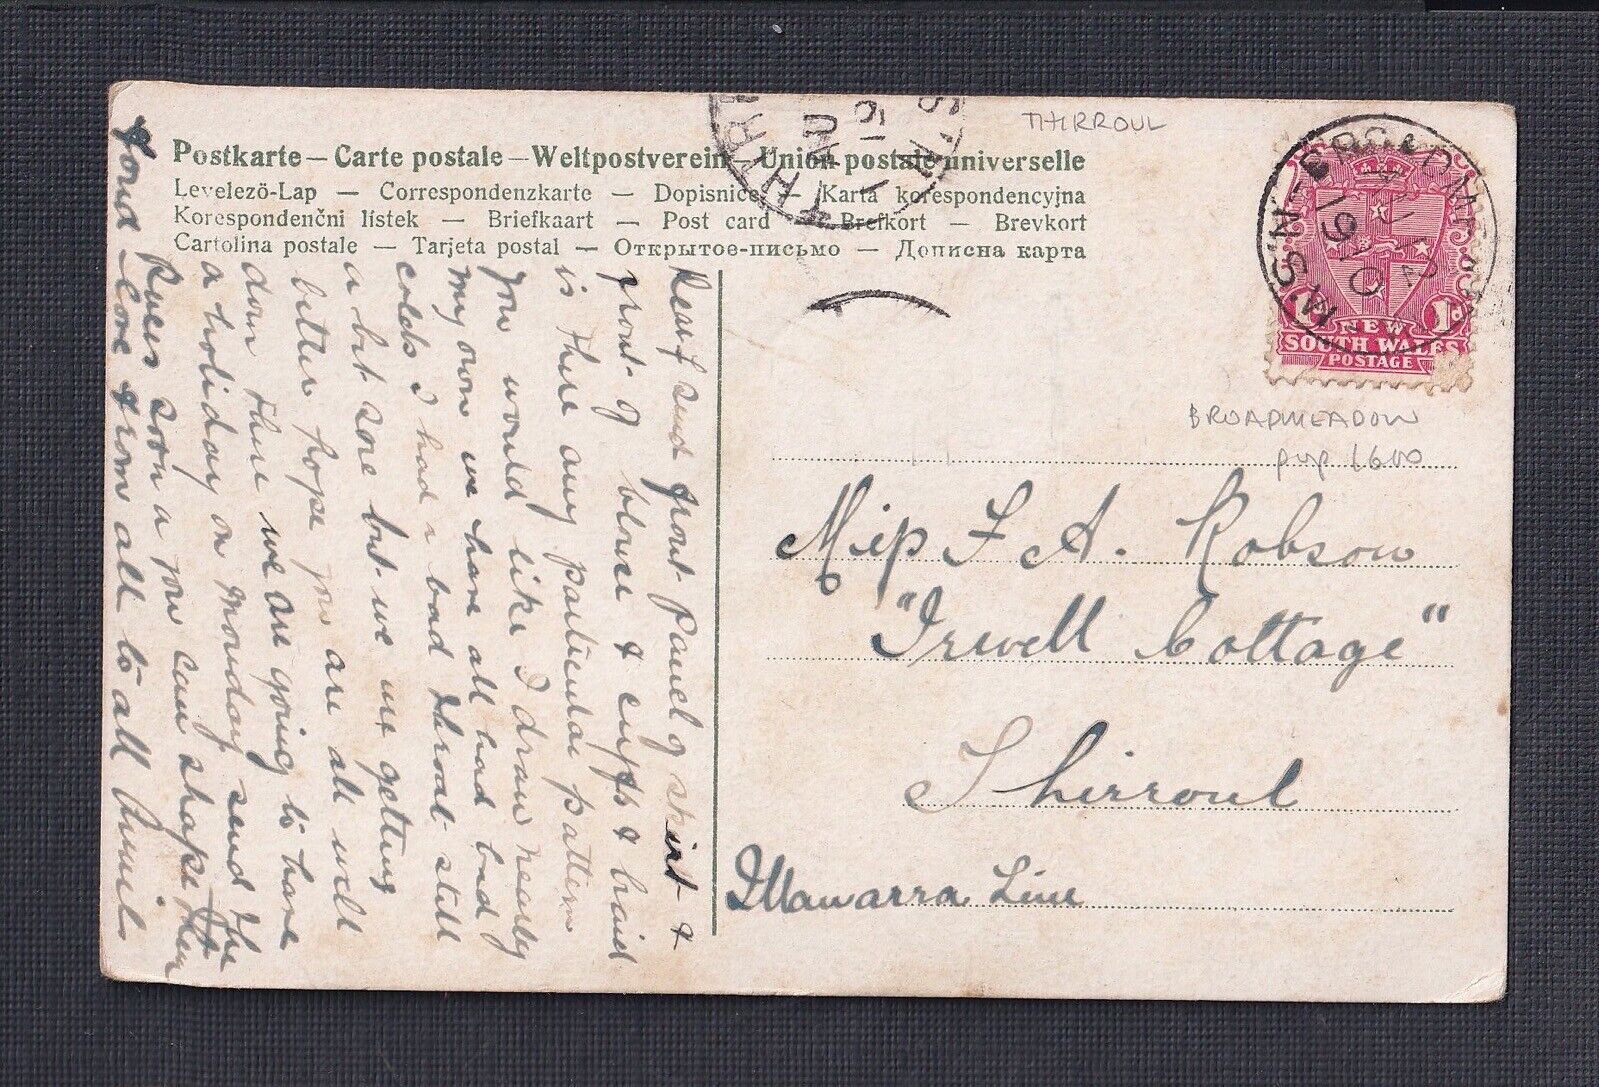 THIRROUL
Postkarte — Carte postale — Weltpostverein — Union postale universelle
Levelezö-Lap — Correspondenzkarte — Dopisnice — Karta korespondencyjna
Korespondenční lístek — Briefkaart — Post card — Brefkort — Brevkort
Cartolina postale — Tarjeta postal — Открытое-письмо — Дописна карта
THIRR
JU
N.S.W
BROADMEADOW N.S.W
1910
NEW
SOUTH WALES
POSTAGE
1d
BROADMEADOW
pmp 1600
Miss F A. Robson
"Irwell Cottage"
Thirroul
Illawarra Line
Dear send front Panel of skirt &
front of blouse & cuffs & braid
is there any particular pattern
you would like I draw nearly
my own we have all had bad
colds I had a bad throat still
a bit sore but we are getting
better hope you are all well
down there we are going to have
a holiday on Monday send the
soon a you can shape them
Fond love from all to all Annie